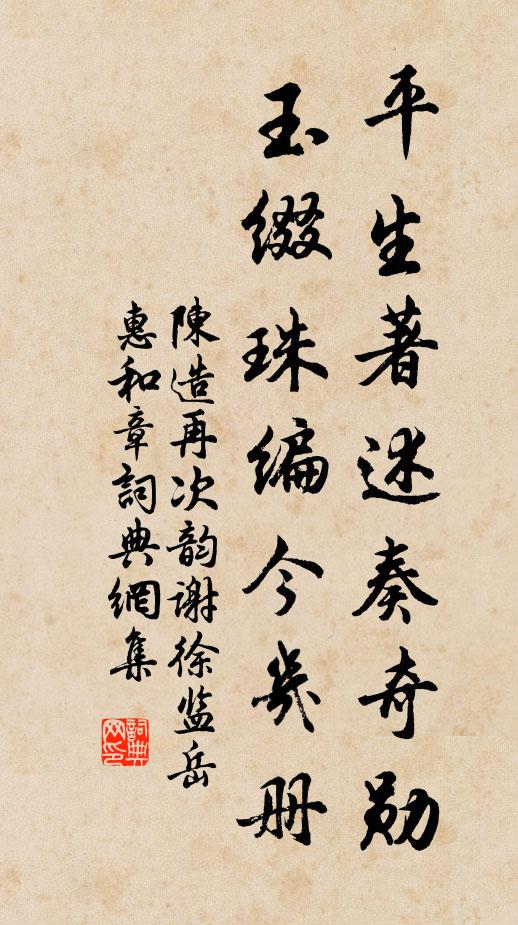 平生著述奏奇勋
玉缀珠编今几册
陳造再次韵谢徐监岳
惠和章詞典網集
詞典网印